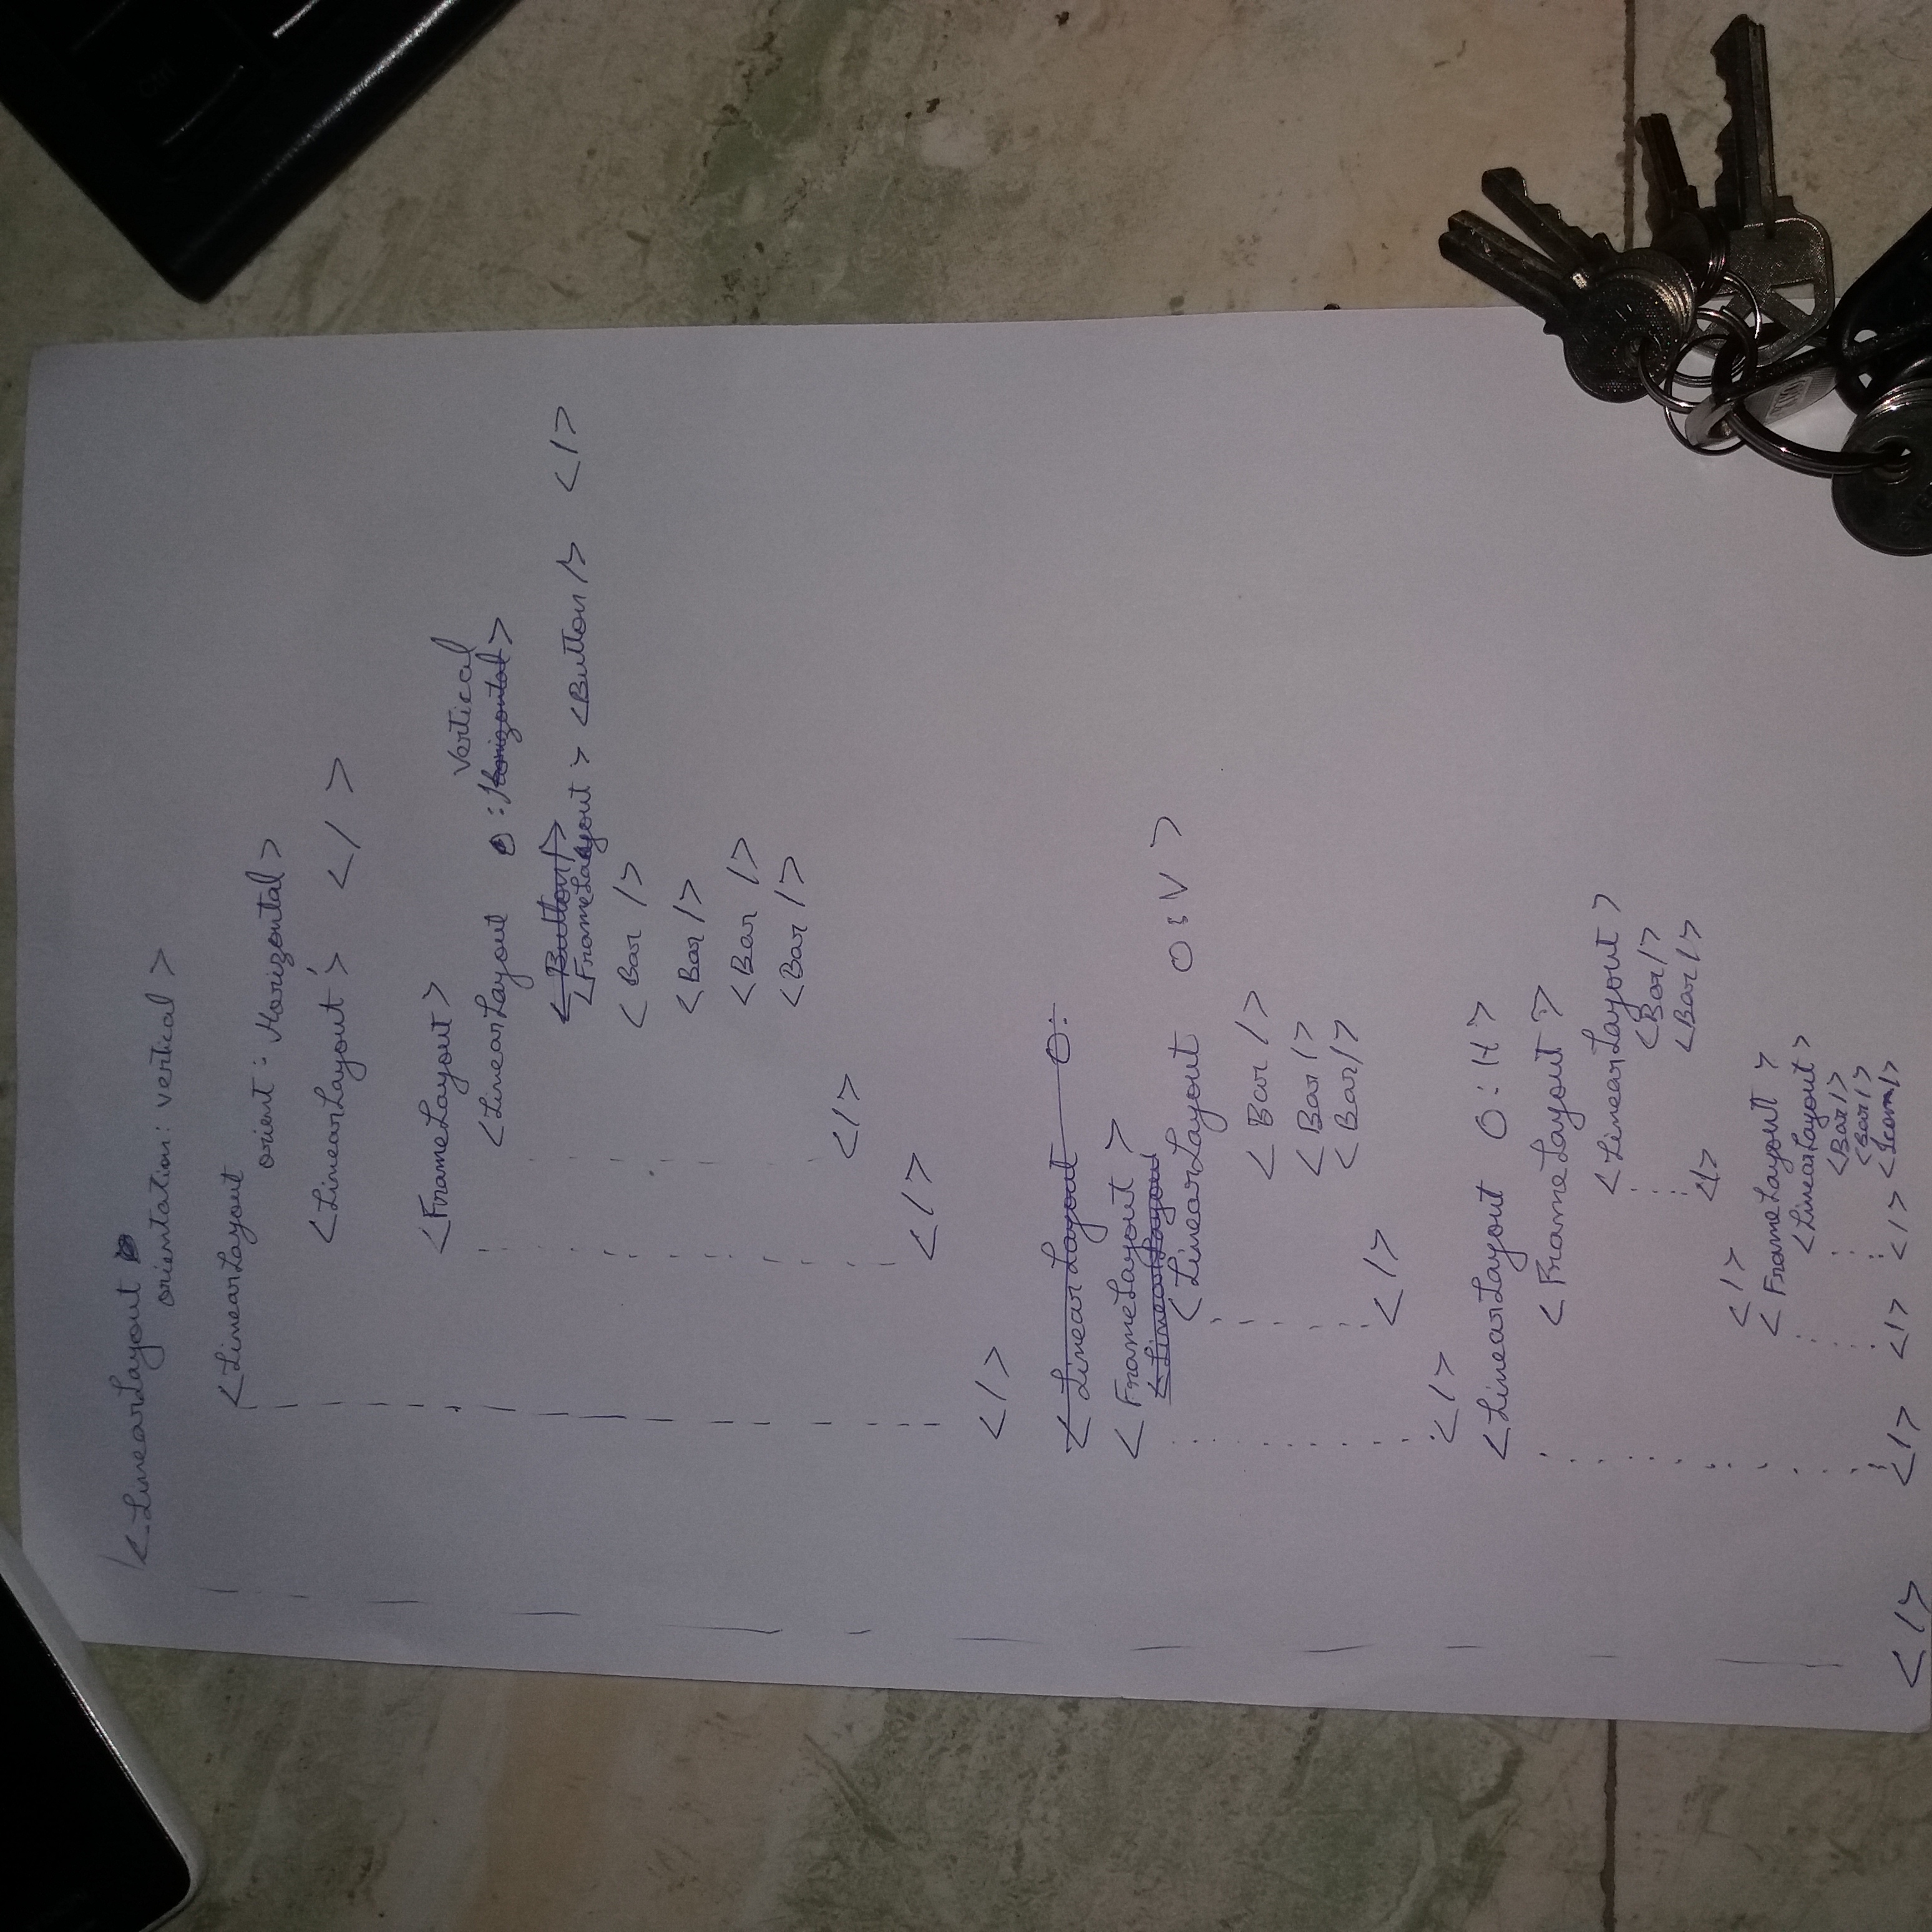 <LinearLayout
orientation: vertical >
<LinearLayout
orient : Horizontal >
<LinearLayout > </ >
<FrameLayout>
Vertical
<LinearLayout O : Horizontal >
< Button/>
<FrameLayout > <Button /> </>
< Bar />
<Bar />
<Bar />
<Bar />
</>
</>
</>
< LinearLayout O:
< FrameLayout >
<LinearLayout
<LinearLayout O : V >
< Bar />
< Bar />
< Bar/>
</>
</>
<LinearLayout O : H >
< FrameLayout >
<LinearLayout >
<Bar/>
<Bar/>
</>
</>
< FrameLayout >
<LinearLayout >
<Bar/>
<Bar/>
</> </> </> </> <Icon/>